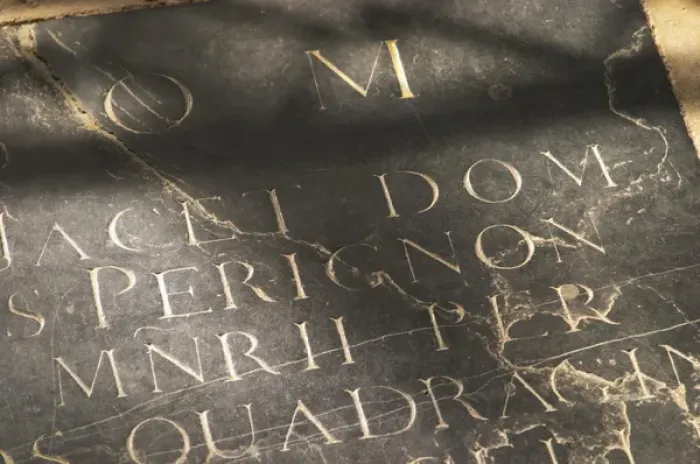 O M
JACET DOM
S PERIGNON
MNRII PER
S QUADR